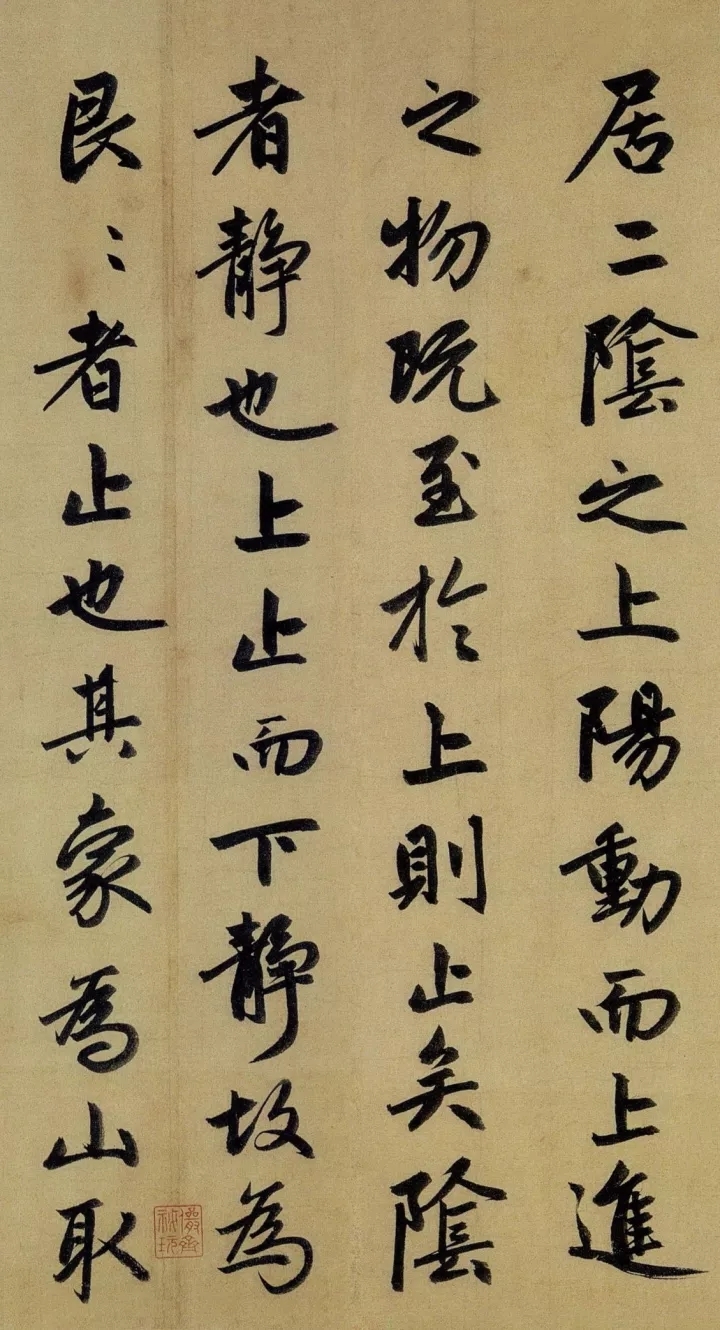 居二陰之上陽動而上進
之物既至於上則止矣陰
者靜也上止而下靜故為
艮〻者止也其象為山取